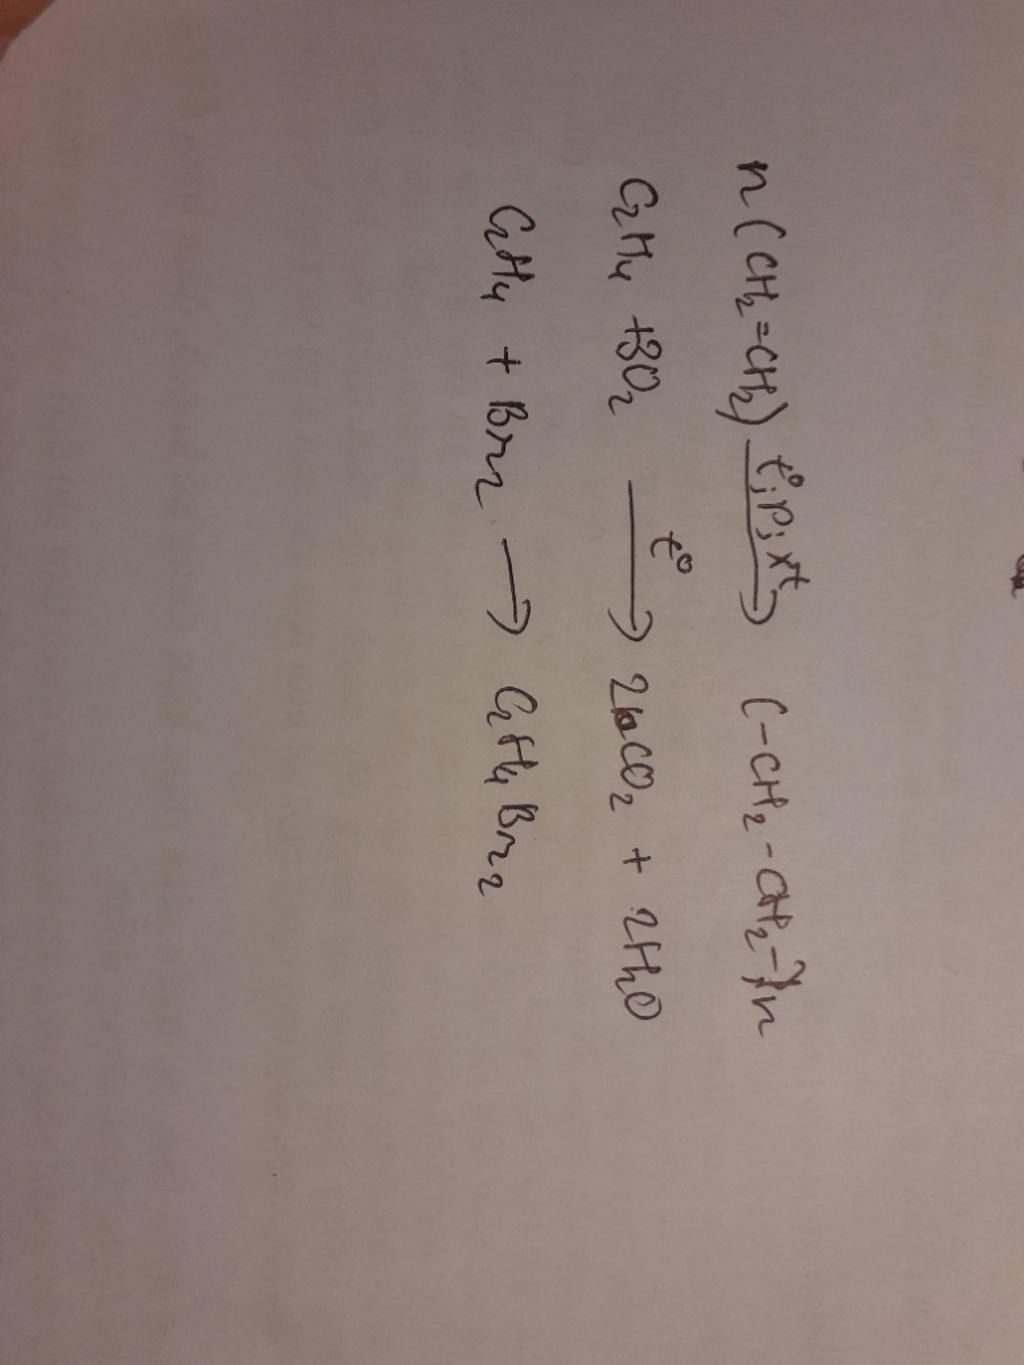 n(CH₂=CH₂) t°;P;xt → (-CH₂-CH₂-)n
C₂H₄ +3O₂ t° → 2CO₂ + 2H₂O
C₂H₄ + Br₂ → C₂H₄Br₂